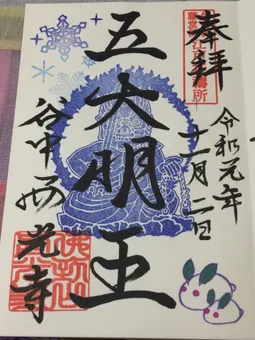 奉拝
令和元年
十一月二日
五大明王
谷中
西光寺